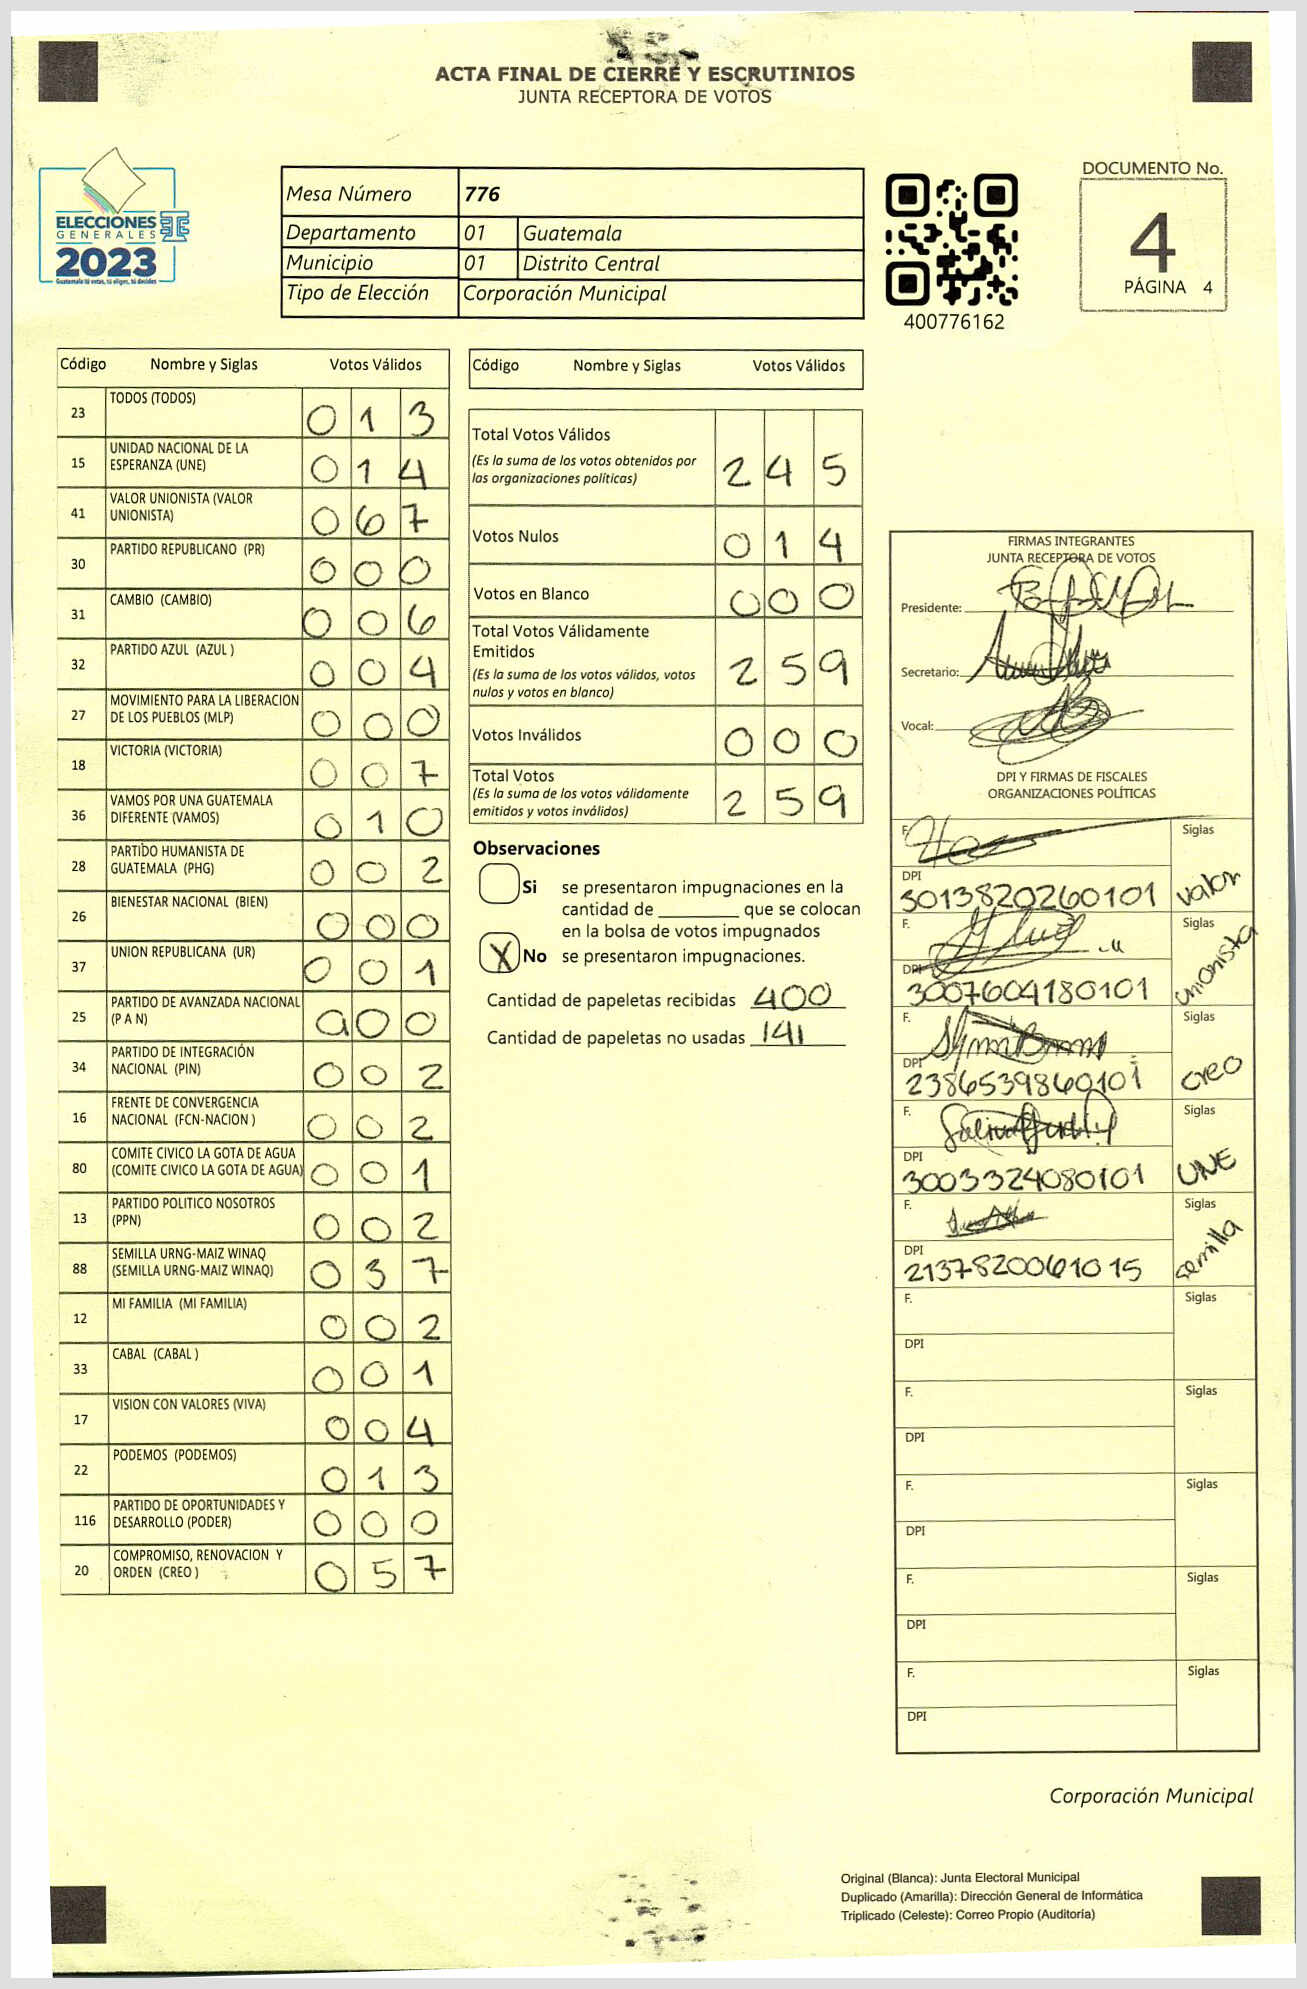 ACTA FINAL DE CIERRE Y ESCRUTINIOS
JUNTA RECEPTORA DE VOTOS
ELECCIONES
GENERALES
2023
Guatemala tú votas, tú eliges, tú decides
Mesa Número 776
Departamento 01 Guatemala
Municipio 01 Distrito Central
Tipo de Elección Corporación Municipal
400776162
DOCUMENTO No.
4
PÁGINA 4
Código Nombre y Siglas Votos Válidos
23 TODOS (TODOS) 0 1 3
15 UNIDAD NACIONAL DE LA
ESPERANZA (UNE) 0 1 4
41 VALOR UNIONISTA (VALOR
UNIONISTA) 0 6 7
30 PARTIDO REPUBLICANO (PR) 0 0 0
31 CAMBIO (CAMBIO) 0 0 6
32 PARTIDO AZUL (AZUL ) 0 0 4
27 MOVIMIENTO PARA LA LIBERACION
DE LOS PUEBLOS (MLP) 0 0 0
18 VICTORIA (VICTORIA) 0 0 7
36 VAMOS POR UNA GUATEMALA
DIFERENTE (VAMOS) 0 1 0
28 PARTIDO HUMANISTA DE
GUATEMALA (PHG) 0 0 2
26 BIENESTAR NACIONAL (BIEN) 0 0 0
37 UNION REPUBLICANA (UR) 0 0 1
25 PARTIDO DE AVANZADA NACIONAL
(P A N) 0 0 0
34 PARTIDO DE INTEGRACIÓN
NACIONAL (PIN) 0 0 2
16 FRENTE DE CONVERGENCIA
NACIONAL (FCN-NACION ) 0 0 2
80 COMITE CIVICO LA GOTA DE AGUA
(COMITE CIVICO LA GOTA DE AGUA) 0 0 1
13 PARTIDO POLITICO NOSOTROS
(PPN) 0 0 2
88 SEMILLA URNG-MAIZ WINAQ
(SEMILLA URNG-MAIZ WINAQ) 0 3 7
12 MI FAMILIA (MI FAMILIA) 0 0 2
33 CABAL (CABAL ) 0 0 1
17 VISION CON VALORES (VIVA) 0 0 4
22 PODEMOS (PODEMOS) 0 1 3
116 PARTIDO DE OPORTUNIDADES Y
DESARROLLO (PODER) 0 0 0
20 COMPROMISO, RENOVACION Y
ORDEN (CREO ) 0 5 7
Código Nombre y Siglas Votos Válidos
Total Votos Válidos
(Es la suma de los votos obtenidos por
las organizaciones políticas) 2 4 5
Votos Nulos 0 1 4
Votos en Blanco 0 0 0
Total Votos Válidamente
Emitidos
(Es la suma de los votos válidos, votos
nulos y votos en blanco) 2 5 9
Votos Inválidos 0 0 0
Total Votos
(Es la suma de los votos válidamente
emitidos y votos inválidos) 2 5 9
Observaciones
Si se presentaron impugnaciones en la
cantidad de ________ que se colocan
en la bolsa de votos impugnados
X No se presentaron impugnaciones.
Cantidad de papeletas recibidas 400
Cantidad de papeletas no usadas 141
FIRMAS INTEGRANTES
JUNTA RECEPTORA DE VOTOS
Presidente:
Secretario:
Vocal:
DPI Y FIRMAS DE FISCALES
ORGANIZACIONES POLÍTICAS
F. Siglas
DPI
3013820260101 valor
F. Siglas
DPI
3007604180101 unionista
F. Siglas
DPI
2386539860101 creo
F. Siglas
DPI
3003324080101 UNE
F. Siglas
DPI
2137820061015 semilla
F. Siglas
DPI
F. Siglas
DPI
F. Siglas
DPI
F. Siglas
DPI
F. Siglas
DPI
Corporación Municipal
Original (Blanca): Junta Electoral Municipal
Duplicado (Amarilla): Dirección General de Informática
Triplicado (Celeste): Correo Propio (Auditoría)